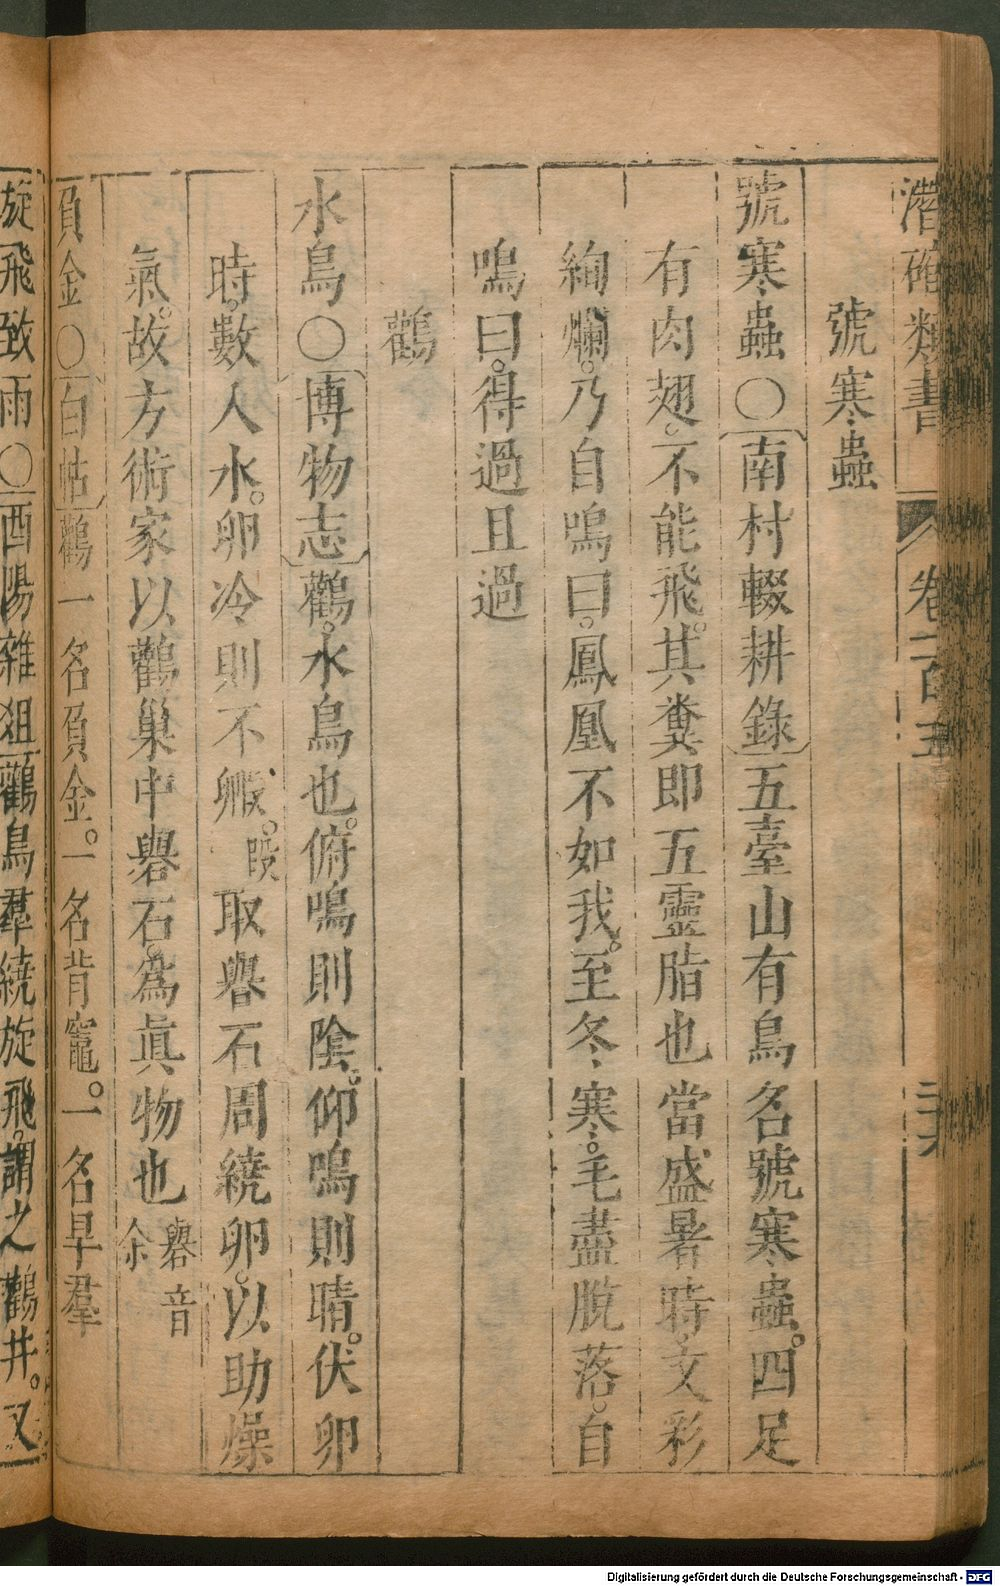 潛確類書 卷一百五 二六
號寒蟲
號寒蟲〇南村輟耕錄五臺山有鳥名號寒蟲。四足
有肉翅。不能飛。其糞即五靈脂也當盛暑時。文彩
絢爛。乃自鳴曰。鳳凰不如我。至冬寒。毛盡脫落。自
鳴曰。得過且過
鸛
水鳥〇博物志鸛。水鳥也。俯鳴則陰。仰鳴則晴。伏卵
時。數人水。卵冷則不㲉。段取礜石周繞卵。以助燥
氣。故方術家以鸛巢中礜石。為眞物也礜音余
負金〇白帖鸛一名負金。一名背竈。一名旱羣
旋飛致雨〇酉陽雜俎鸛鳥羣繞旋飛。謂之鸛井。又
Digitalisierung gefördert durch die Deutsche Forschungsgemeinschaft - DFG